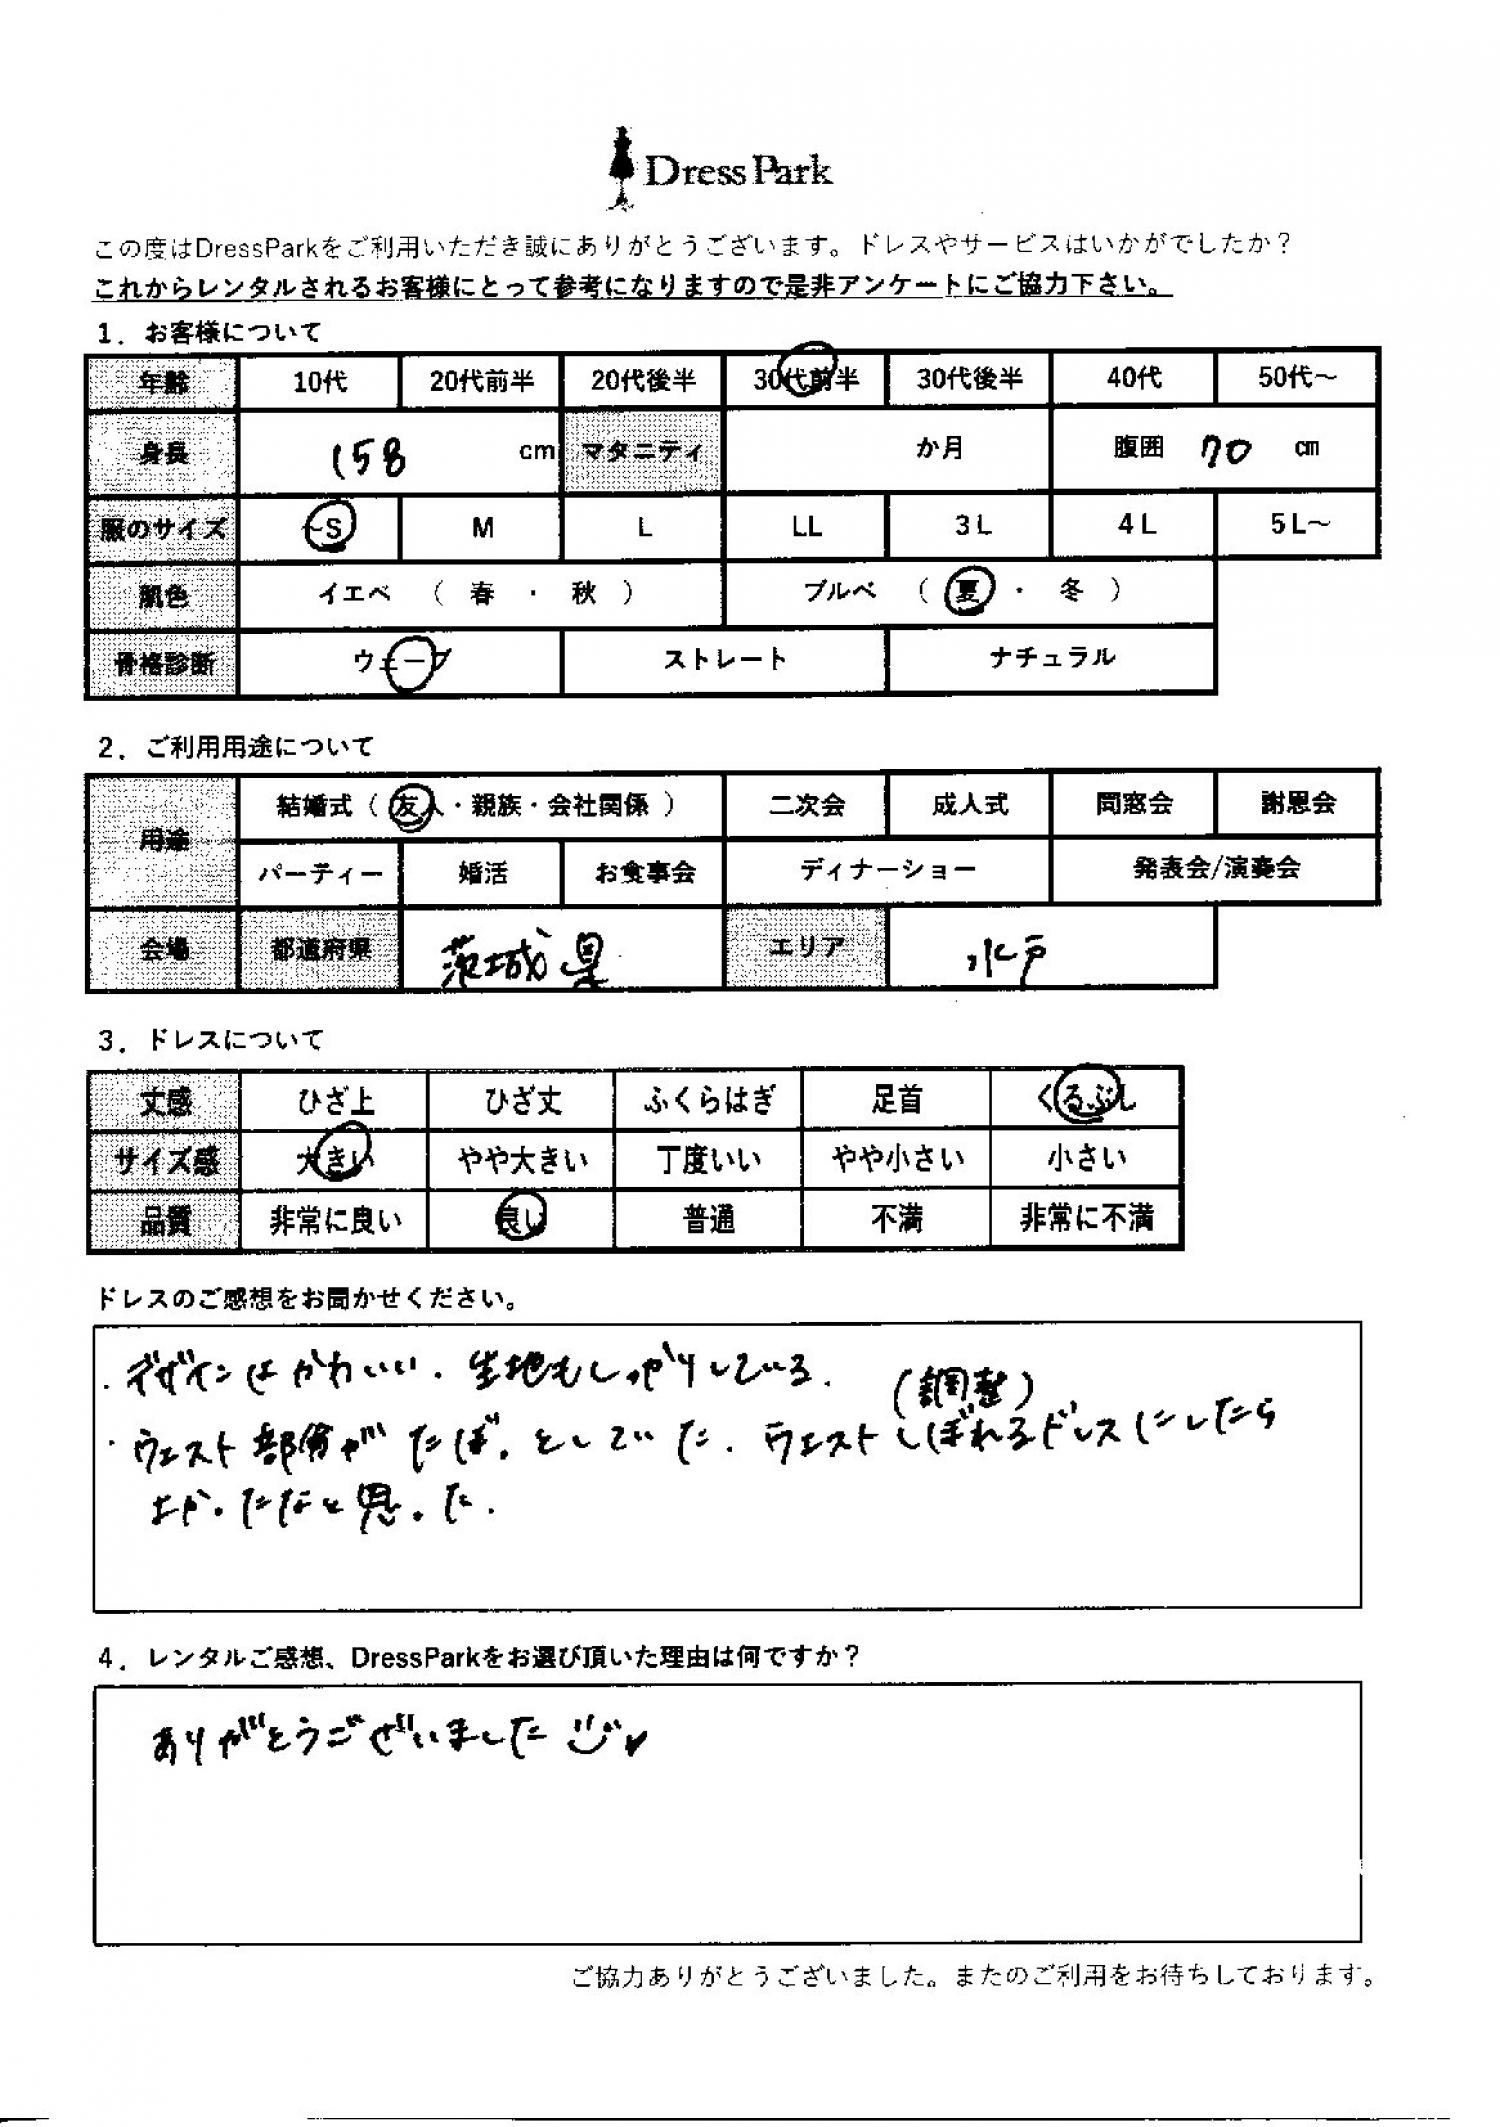 DressPark
この度はDressParkをご利用いただき誠にありがとうございます。ドレスやサービスはいかがでしたか？
これからレンタルされるお客様にとって参考になりますので是非アンケートにご協力下さい。
1．お客様について
年齢 10代 20代前半 20代後半 30代前半 30代後半 40代 50代～
身長 158 cm マタニティ か月 腹囲 70 cm
服のサイズ ~S M L LL 3L 4L 5L～
肌色 イエベ （ 春 ・ 秋 ） ブルベ （ 夏 ・ 冬 ）
骨格診断 ウェーブ ストレート ナチュラル
2．ご利用用途について
用途 結婚式（ 友人・親族・会社関係 ） 二次会 成人式 同窓会 謝恩会
パーティー 婚活 お食事会 ディナーショー 発表会/演奏会
会場 都道府県 茨城県 エリア 水戸
3．ドレスについて
丈感 ひざ上 ひざ丈 ふくらはぎ 足首 くるぶし
サイズ感 大きい やや大きい 丁度いい やや小さい 小さい
品質 非常に良い 良い 普通 不満 非常に不満
ドレスのご感想をお聞かせください。
・デザインはかわいい。生地もしっかりしている。
（調整）
・ウエスト部分がたぼっとしていた。ウエストしぼれるドレスにしたら
よかったなと思った。
4．レンタルご感想、DressParkをお選び頂いた理由は何ですか？
ありがとうございました
ご協力ありがとうございました。またのご利用をお待ちしております。